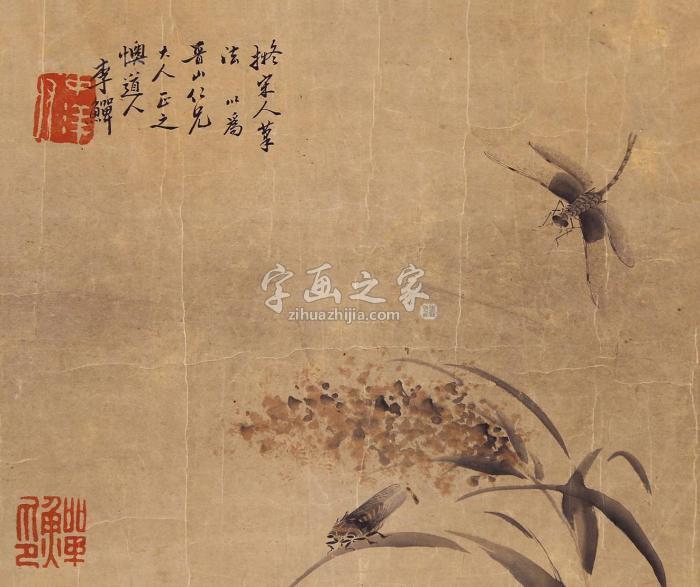 擬宋人筆
法 以為
晋山仁兄
大人正之
懊道人
李鱓
字画之家
zihuazhijia.com